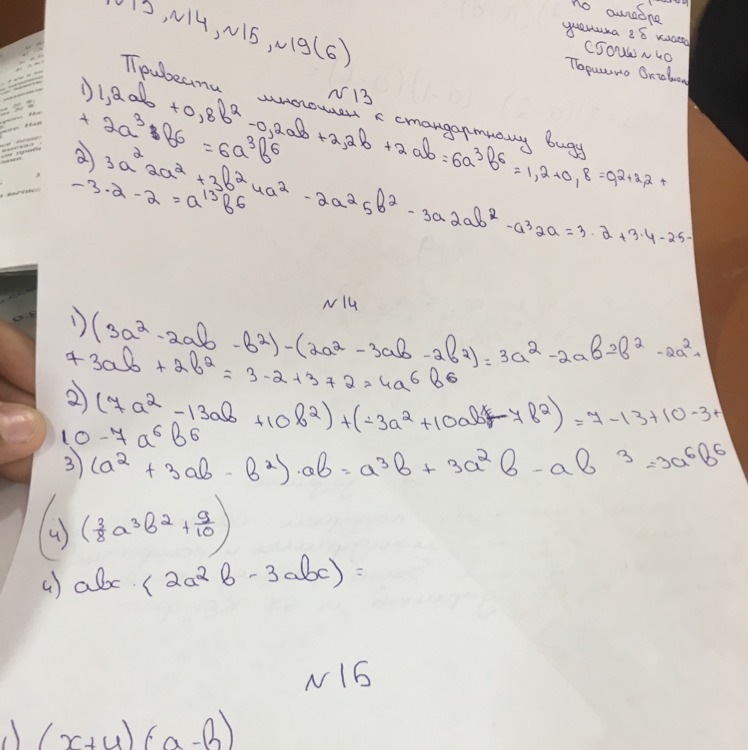 №14, №15, №19(6)
по алгебре
ученика 8б класса
№40
№13
Привести многочлен к стандартному виду
1) 1,2ab + 0,8b² - 0,2ab + 2,2b + 2ab = 6a³b⁶ = 1,2 + 0,8 = 0,2 + 2,2 +
+ 2a³ b⁶ = 6a³b⁶
2) 3a² 2a² + 3b² 4a² - 2a² 5b² - 3a 2ab² - a³ 2a = 3 · 2 + 3 · 4 - 25 -
- 3 · 2 - 2 = a¹³b⁶
№14
1) (3a² - 2ab - b²) - (2a² - 3ab - 2b²) = 3a² - 2ab - b² - 2a² +
+ 3ab + 2b² = 3 - 2 + 3 + 2 = 4a⁶b⁶
2) (7a² - 13ab + 10b²) + (-3a² + 10ab - 7b²) = 7 - 13 + 10 - 3 +
10 - 7 a⁶b⁶
3) (a² + 3ab - b²) · ab = a³b + 3a²b - ab³ = 3a⁶b⁶
4) (3/8 a³b² + 9/10)
4) abc · (2a²b - 3abc) =
№15
1) (x+y) (a-b)